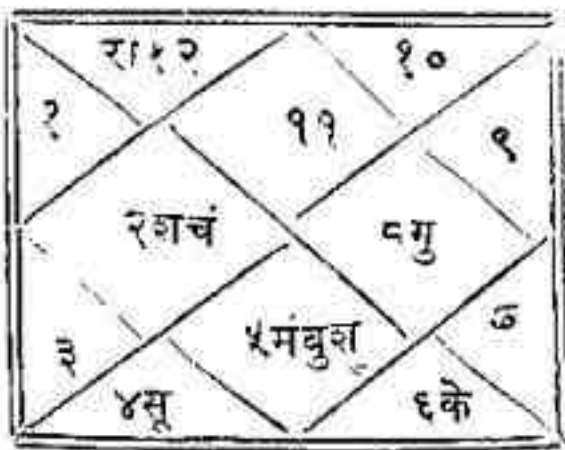 रा१२
१०
१
११
९
२शचं
८गु
३
५मंबुशु
७
४सू
६के